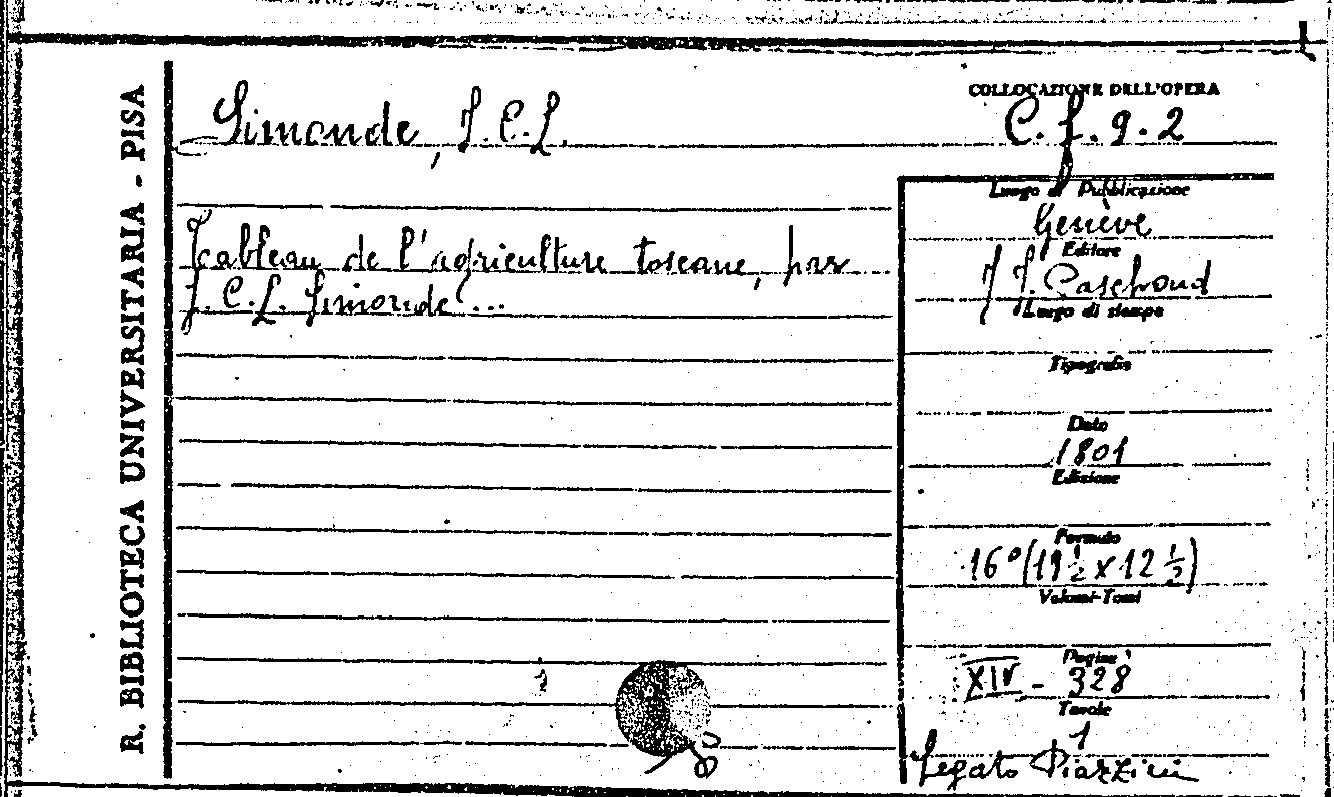 R. BIBLIOTECA UNIVERSITARIA - PISA
Simonde, J. C. L.
COLLOCAZIONE DELL'OPERA
C. f. 9. 2
Tableau de l'agriculture toscane, par
J. C. L. Simonde ...
Luogo di Pubblicazione
Genève
Editore
J. J. Paschoud
Luogo di stampa
Tipografia
Data
1801
Edizione
Formato
16° (19 ½ x 12 ½)
Volumi-Tomi
Pagine
XIV - 328
Tavole
1
Legato Piazzini